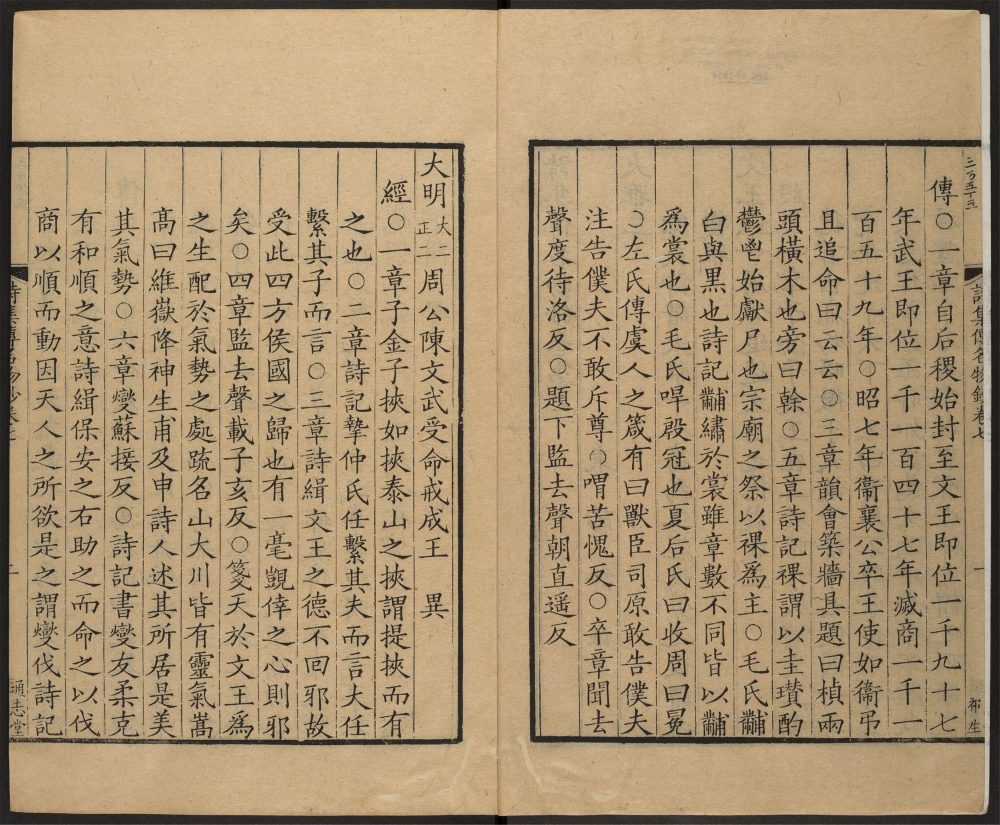 三百五十五
詩集傳名物鈔卷七
一
祁生
傳○一章自后稷始封至文王即位一千九十七
年武王即位一千一百四十七年滅商一千一
百五十九年○昭七年衞襄公卒王使如衞弔
且追命曰云云○三章韻會築牆具題曰楨兩
頭橫木也旁曰榦○五章詩記祼謂以圭瓚酌
鬱鬯始獻尸也宗廟之祭以祼爲主○毛氏黼
白與黑也詩記黼繡於裳雖章數不同皆以黼
爲裳也○毛氏冔殷冠也夏后氏曰收周曰冕
○左氏傳虞人之箴有曰獸臣司原敢告僕夫
注告僕夫不敢斥尊○喟苦愧反○卒章聞去
聲度待洛反○題下監去聲朝直遥反
大明大二正二周公陳文武受命戒成王　異
經○一章子金子挾如挾泰山之挾謂提挾而有
之也○二章詩記摯仲氏任繫其夫而言大任
繫其子而言○三章詩緝文王之德不回邪故
受此四方侯國之歸也有一毫覬倖之心則邪
矣○四章監去聲載子亥反○箋天於文王爲
之生配於氣勢之處疏名山大川皆有靈氣嵩
高曰維嶽降神生甫及申詩人述其所居是美
其氣勢○六章燮蘇接反○詩記書燮友柔克
有和順之意詩緝保安之右助之而命之以伐
商以順而動因天人之所欲是之謂燮伐詩記
詩集傳名物鈔卷七
二
通志堂